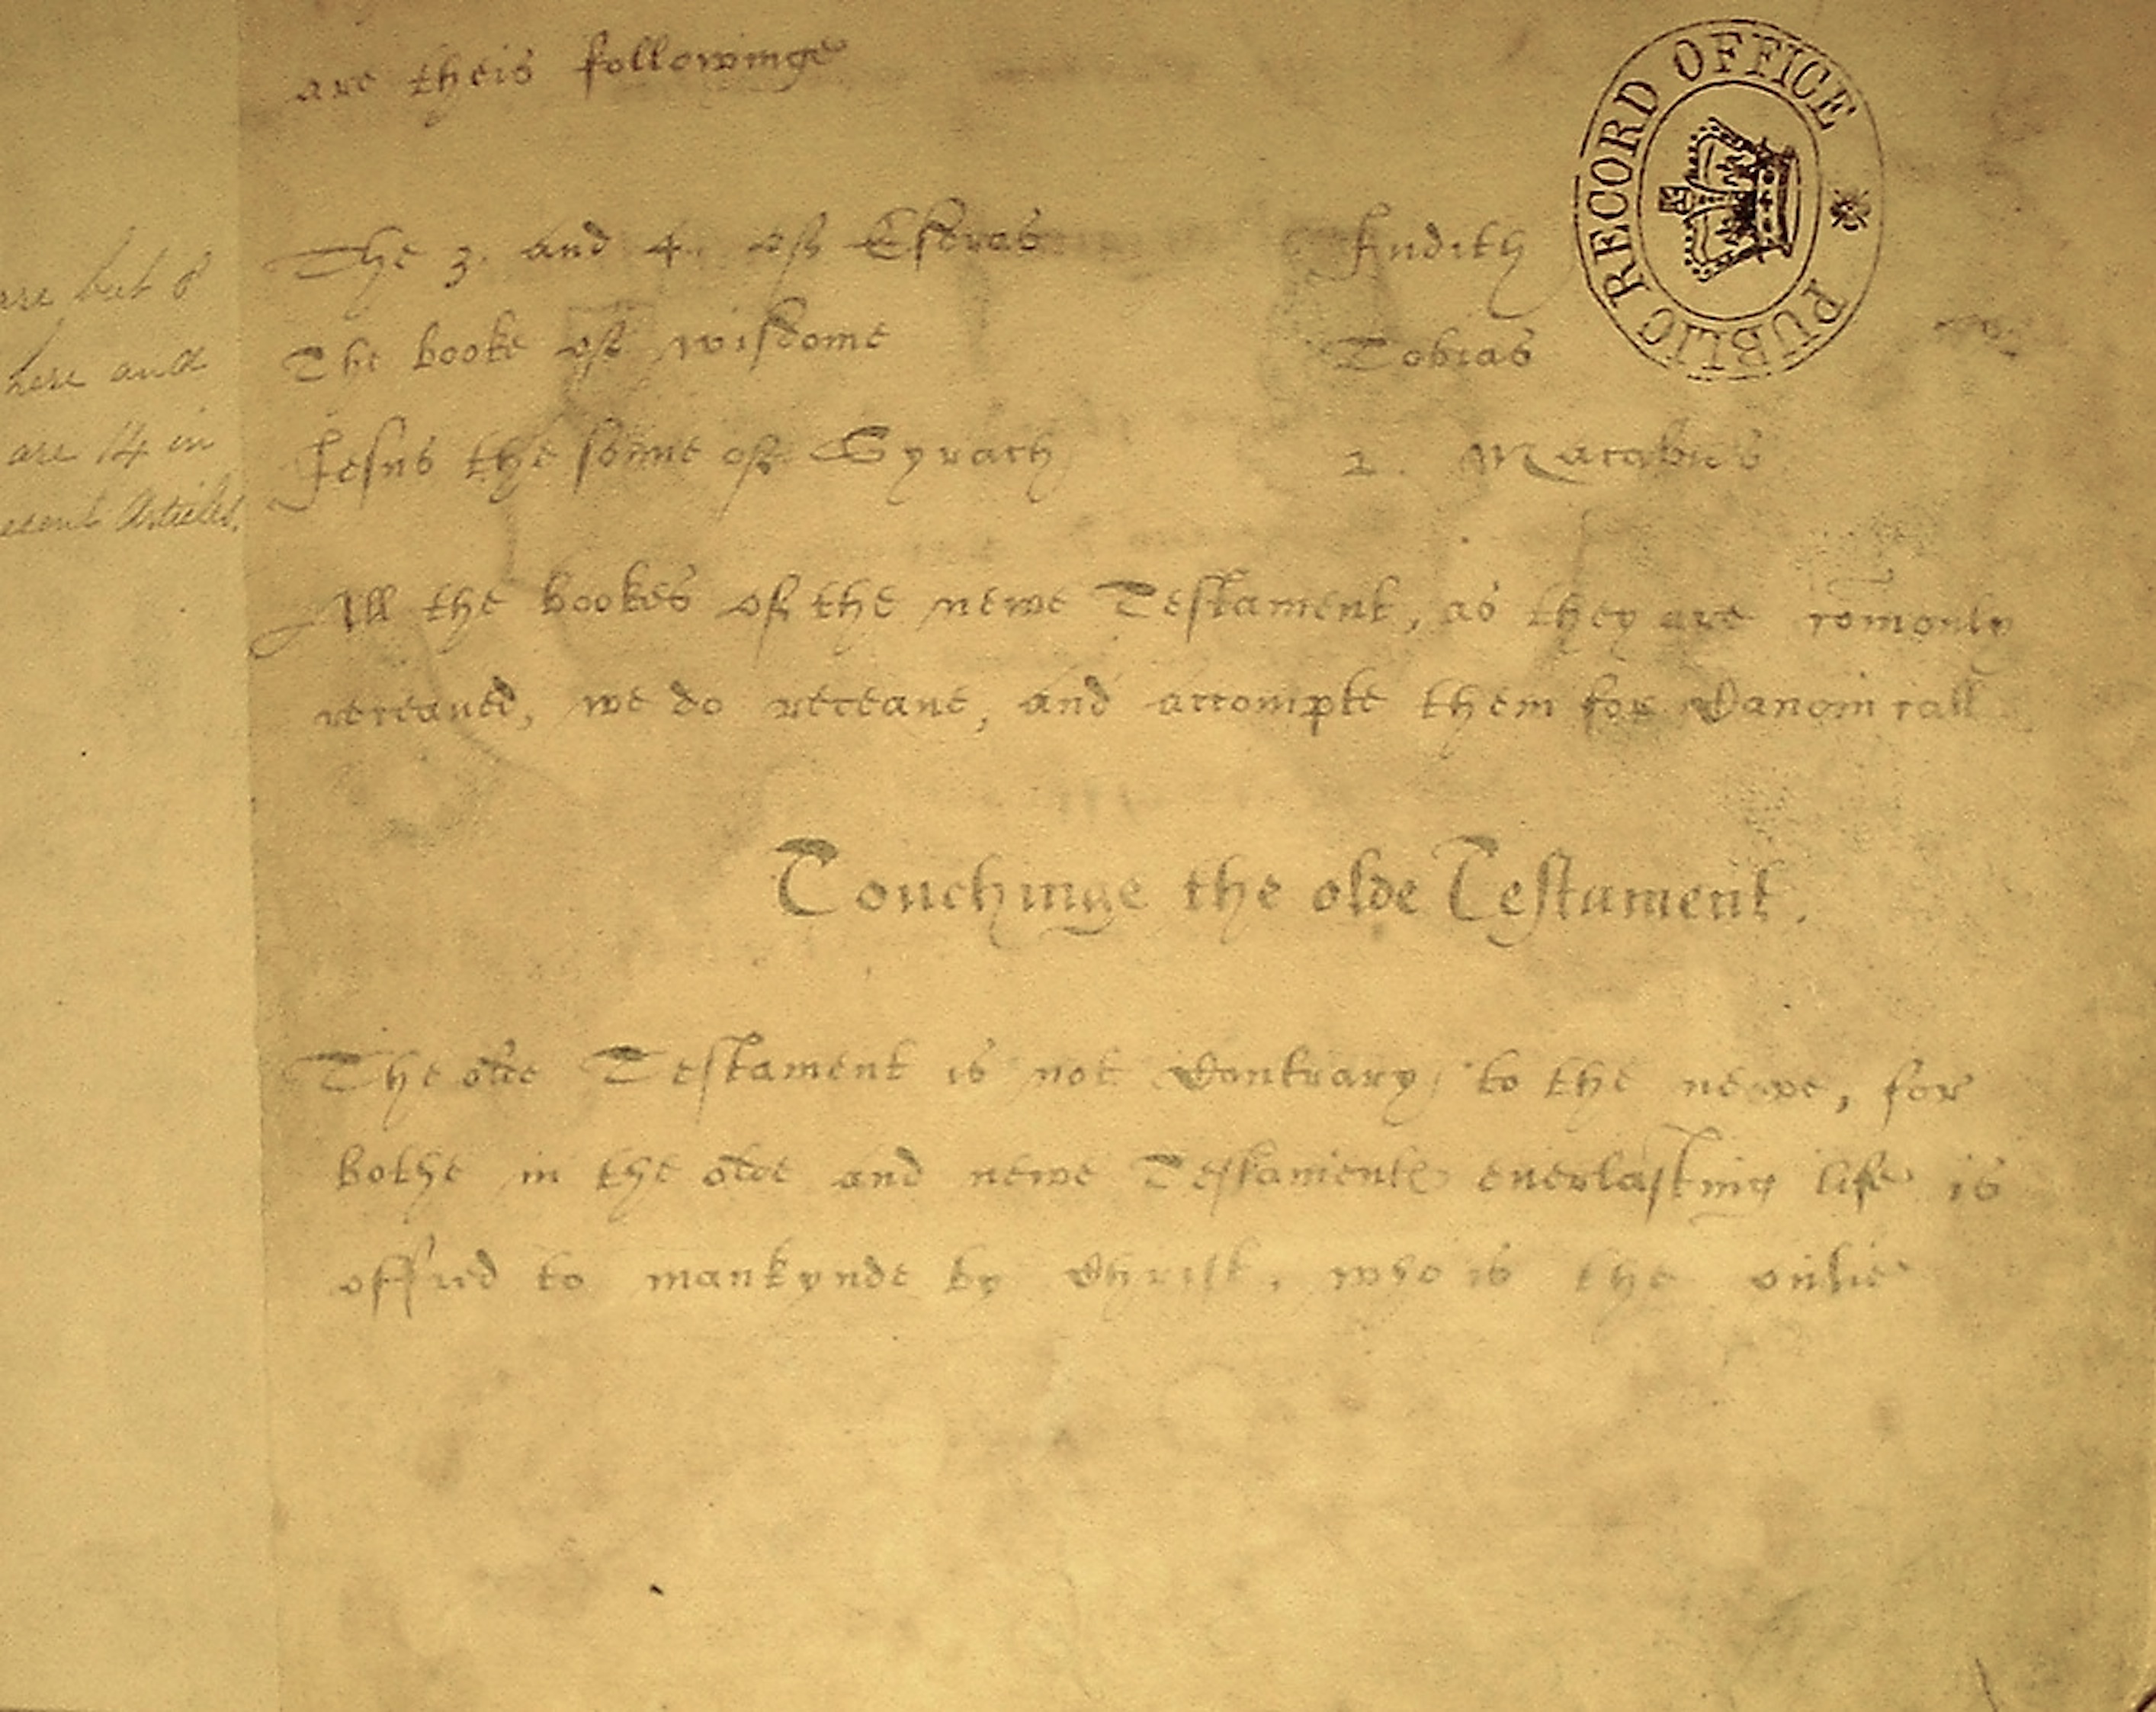 are theis followinge
The 3. and 4. of Esdras Judith
The booke of wisdome Tobias
Jesus the sonne of Syrach 2. Macabees
All the bookes of the newe Testament, as they are comonly
receaued, we do receaue, and accompte them for Canonicall
Touchinge the olde Testament.
The olde Testament is not Contrary to the newe, for
bothe in the olde and newe Testamente euerlasting life is
offred to mankynde by Christ, who is the onlie
are but 8
here and
are 14 in
Articles.
PUBLIC RECORD OFFICE